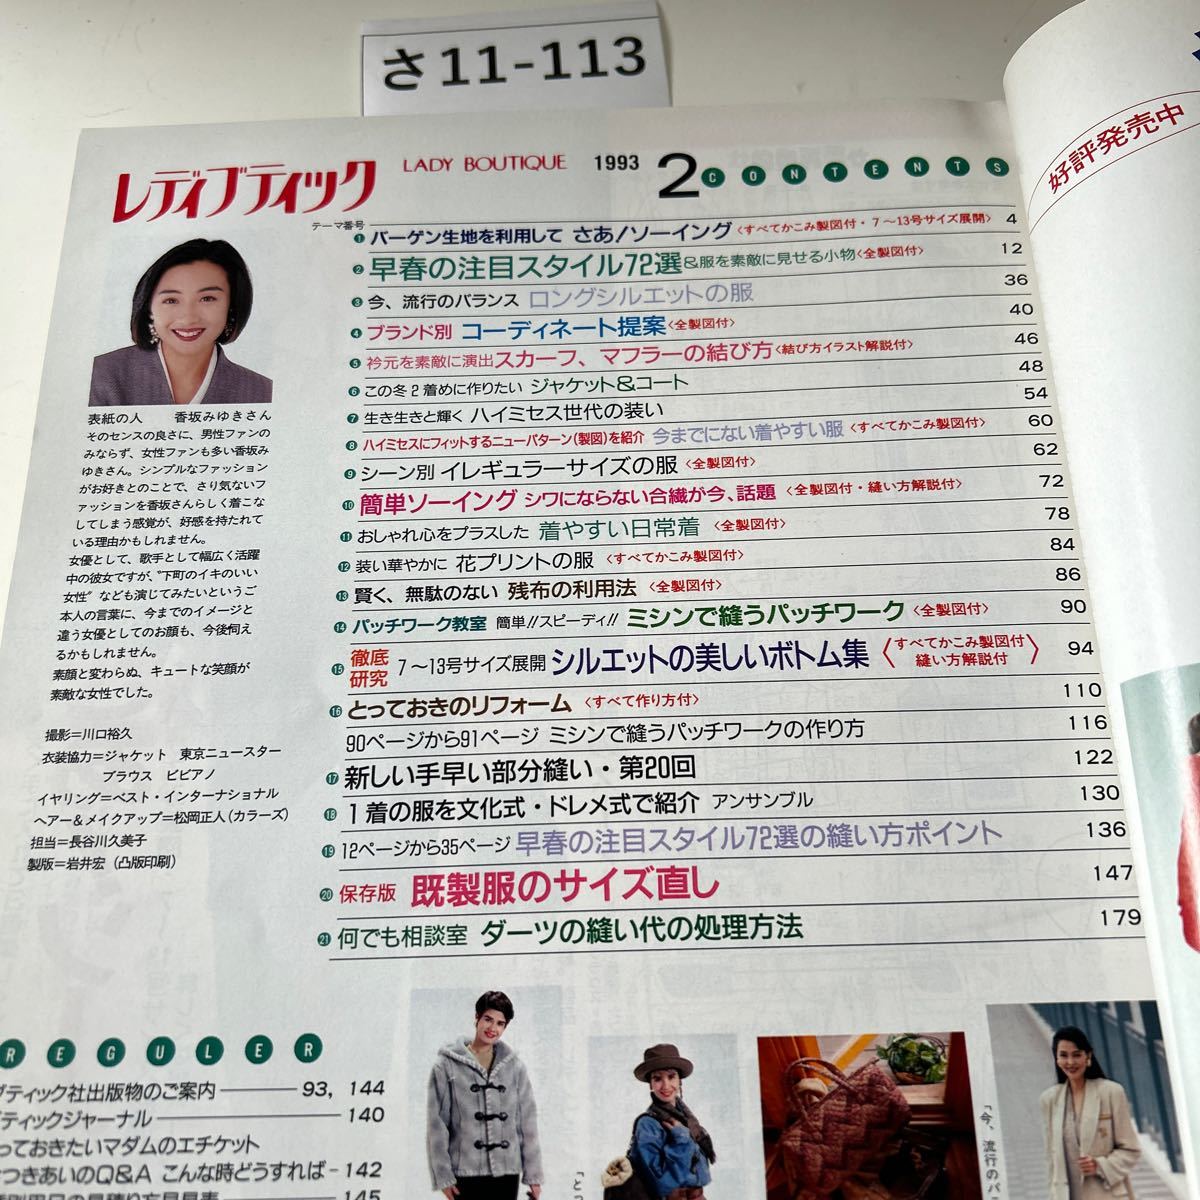 さ11-113
好評発売中
レディブティック LADY BOUTIQUE 1993 2 CONTENTS
テーマ番号
1 バーゲン生地を利用して さあ!ソーイング〈すべてかこみ製図付・7〜13号サイズ展開〉 4
2 早春の注目スタイル72選&服を素敵に見せる小物〈全製図付〉 12
3 今、流行のバランス ロングシルエットの服 36
4 ブランド別 コーディネート提案〈全製図付〉 40
5 衿元を素敵に演出スカーフ、マフラーの結び方〈結び方イラスト解説付〉 46
6 この冬2着めに作りたい ジャケット&コート 48
7 生き生きと輝く ハイミセス世代の装い 54
8 ハイミセスにフィットするニューパターン(製図)を紹介 今までにない着やすい服〈すべてかこみ製図付〉 60
9 シーン別 イレギュラーサイズの服〈全製図付〉 62
10 簡単ソーイング シワにならない合繊が今、話題〈全製図付・縫い方解説付〉 72
11 おしゃれ心をプラスした 着やすい日常着〈全製図付〉 78
12 装い華やかに 花プリントの服〈すべてかこみ製図付〉 84
13 賢く、無駄のない 残布の利用法〈全製図付〉 86
14 パッチワーク教室 簡単!!スピーディ!! ミシンで縫うパッチワーク〈全製図付〉 90
15 徹底研究 7〜13号サイズ展開 シルエットの美しいボトム集〈すべてかこみ製図付 縫い方解説付〉 94
16 とっておきのリフォーム〈すべて作り方付〉 110
90ページから91ページ ミシンで縫うパッチワークの作り方 116
17 新しい手早い部分縫い・第20回 122
18 1着の服を文化式・ドレメ式で紹介 アンサンブル 130
19 12ページから35ページ 早春の注目スタイル72選の縫い方ポイント 136
20 保存版 既製服のサイズ直し 147
21 何でも相談室 ダーツの縫い代の処理方法 179
表紙の人 香坂みゆきさん
そのセンスの良さに、男性ファンの
みならず、女性ファンも多い香坂み
ゆきさん。シンプルなファッション
がお好きとのことで、さり気ないフ
ァッションを香坂さんらしく着こな
してしまう感覚が、好感を持たれて
いる理由かもしれません。
女優として、歌手として幅広く活躍
中の彼女ですが、"下町のイキのいい
女性"なども演じてみたいというご
本人の言葉に、今までのイメージと
違う女優としてのお顔も、今後伺え
るかもしれません。
素顔と変わらぬ、キュートな笑顔が
素敵な女性でした。
撮影=川口裕久
衣装協力=ジャケット 東京ニュースター
ブラウス ビビアノ
イヤリング=ベスト・インターナショナル
ヘアー&メイクアップ=松岡正人(カラーズ)
担当=長谷川久美子
製版=岩井宏(凸版印刷)
REGULER
ブティック社出版物のご案内 93, 144
ティックジャーナル 140
っておきたいマダムのエチケット
つきあいのQ&A こんな時どうすれば 142
145
「と
「今、流行のバ